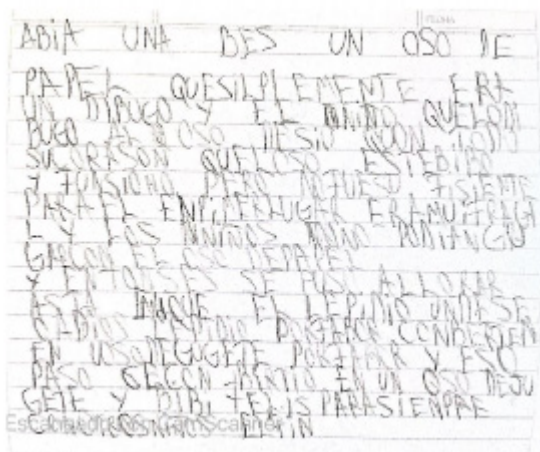 FECHA
ABIA UNA BES UN OSO DE
PAPEL QUESILPLEMENTE ERA
UN DIBUGO Y EL NIÑO QUELODI
BUGO AL OSO DESIO CON TODO
SUCORASON QUELOSO ESTEBIBO
Y FUNSIONO PERO NOFUESU FISIENTE
PARA EL ENPIPERLUGAR ERAMUIFRAGI
L Y LOS NIÑOS NONO PODIANGU
GARCON EL OSO DEPAPEL
Y ENTONSES SE PUSO ALLORAR
ASTA QUE EL LEPIDIO UNDESE
PORFABOR CONBIERTEN
EN UNOSO DEGUGETE PORFABOR Y ESO
PASO SECONBIRTIO EN UN OSO DEJU
GETE Y BIBI FELIS PARASIEMPRE
ELFIN
Escaneado con CamScanner